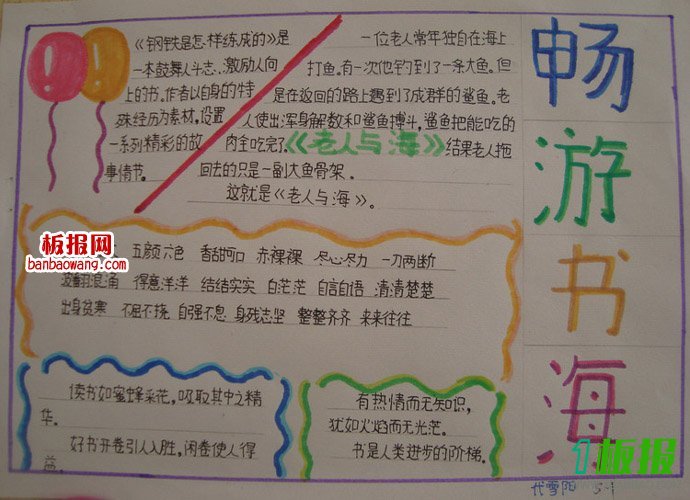 《钢铁是怎样练成的》是
一本鼓舞人斗志、激励人向
上的书。作者以自身的特
殊经历为素材，设置
一系列精彩的故
事情节。
一位老人常年独自在海上
打鱼。有一次他钓到了一条大鱼。但
是在返回的路上遇到了成群的鲨鱼。老
人使出浑身解数和鲨鱼搏斗，鲨鱼把能吃的
肉全吃完了《老人与海》结果老人拖
回去的只是一副大鱼骨架。
这就是《老人与海》。
畅
游
书
海
板报网
banbaowang.com
五颜六色 香甜可口 赤裸裸 尽心尽力 一刀两断
波翻浪涌 得意洋洋 结结实实 白茫茫 自言自语 清清楚楚
出身贫寒 不屈不挠 自强不息 身残志坚 整整齐齐 来来往往
读书如蜜蜂采花，吸取其中之精
华。
好书开卷引人入胜，闲卷使人得
益。
有热情而无知识，
犹如火焰而无光茫。
书是人类进步的阶梯。
1板报
代雪阳 5-1